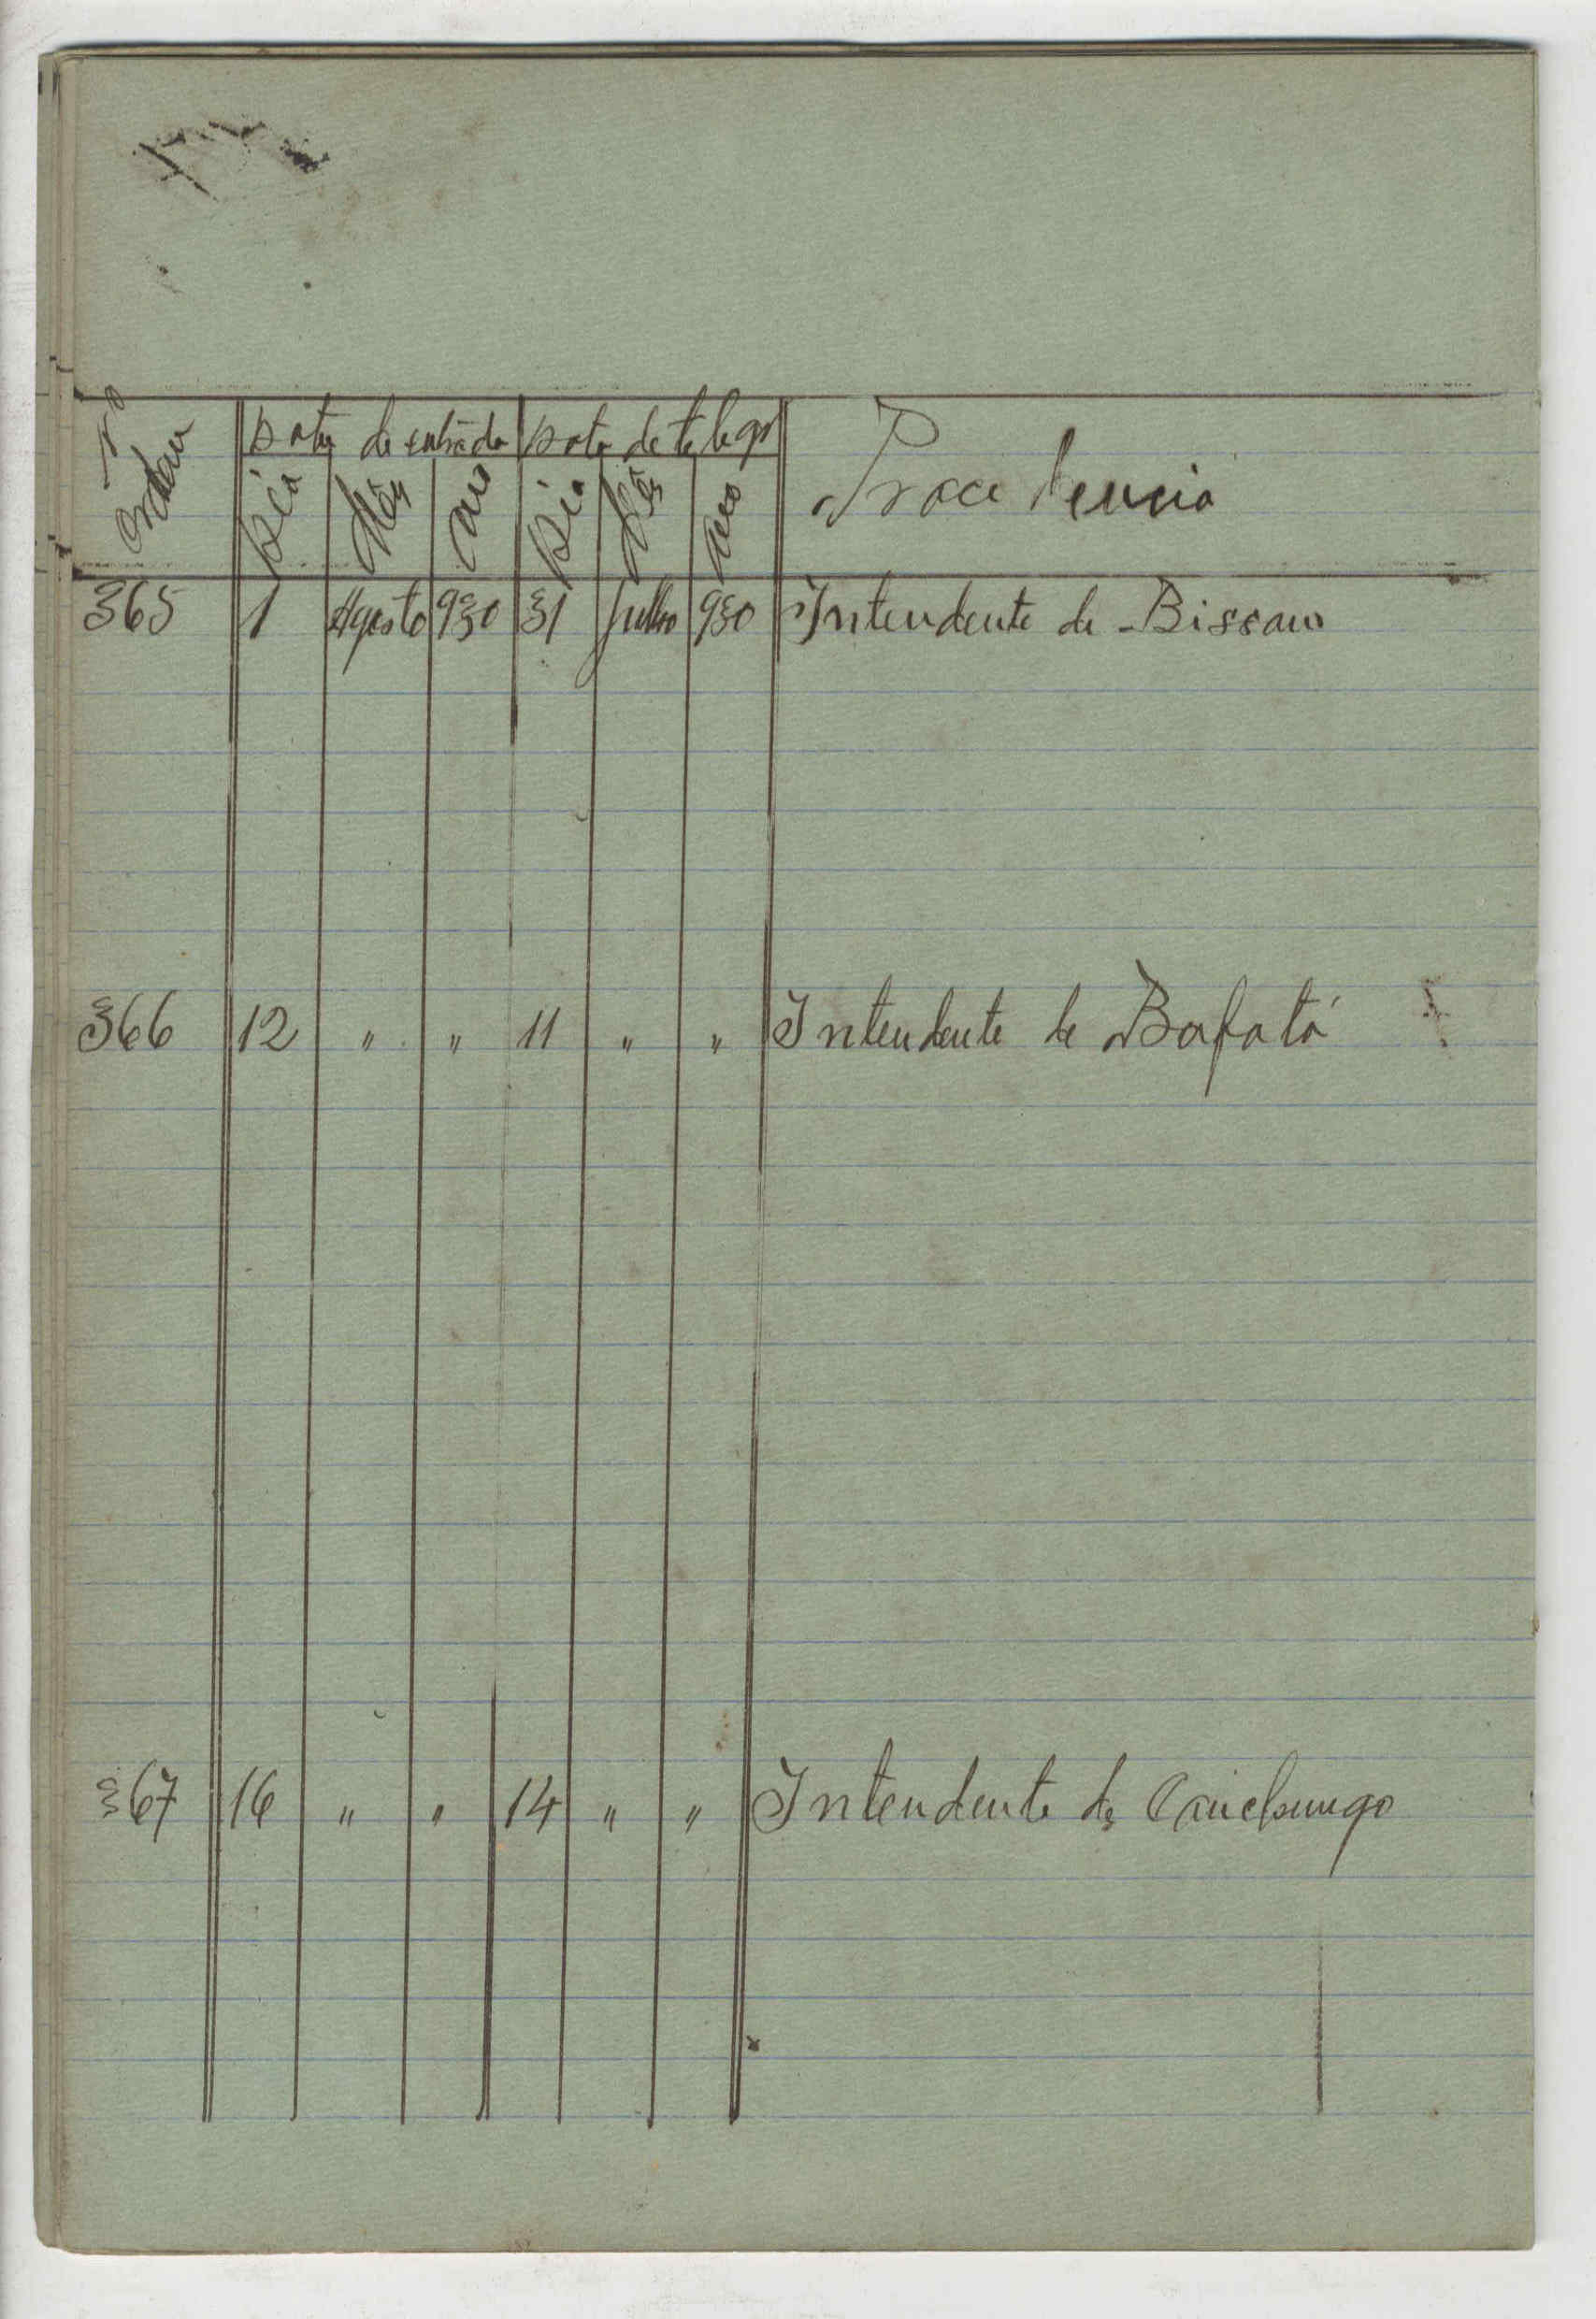 Nº Ordem Data de entrada Data de telegr Procedencia
Dia Mês Ano Dia Mês Ano
365 1 Agosto 930 31 Julho 930 Intendente de Bissau
366 12 " " 11 " " Intendente de Bafatá
367 16 " " 14 " " Intendente de Canchungo